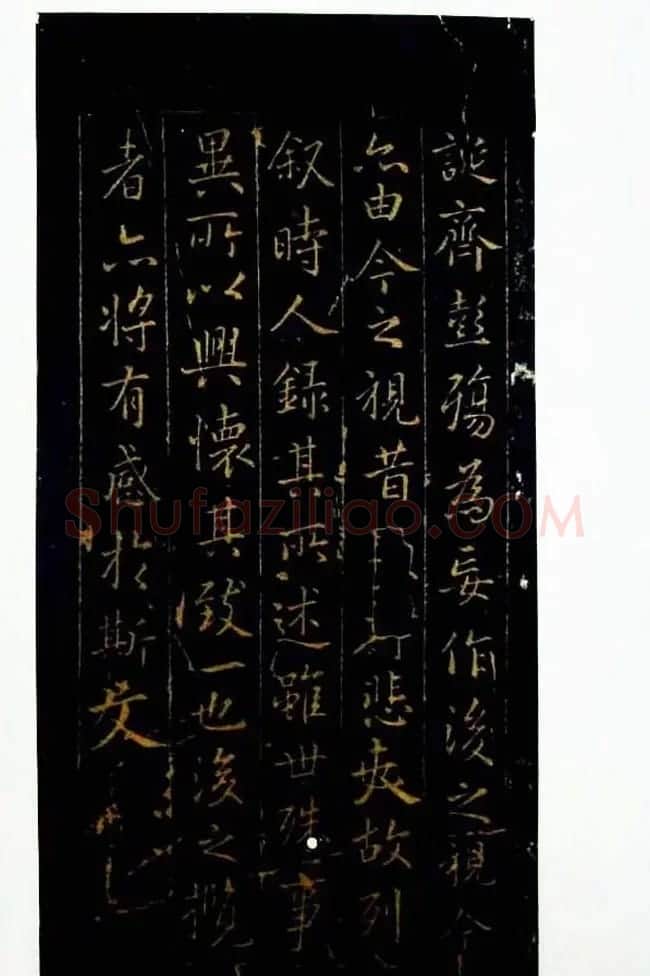 誕齊彭殤為妄作後之視今
亦由今之視昔悲夫故列
叙時人錄其所述雖世殊事
異所以興懷其致一也後之攬
者亦将有感於斯文
Shufaziliao.COM